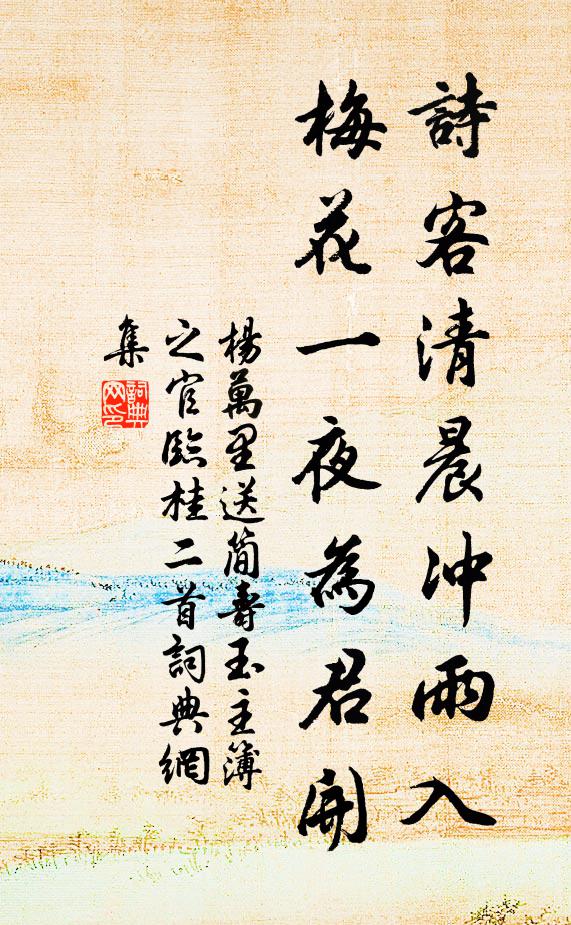 詩客清晨冲雨入
梅花一夜為君開
楊萬里送簡壽玉主簿
之官臨桂二首詞典網
集
詞典
网印